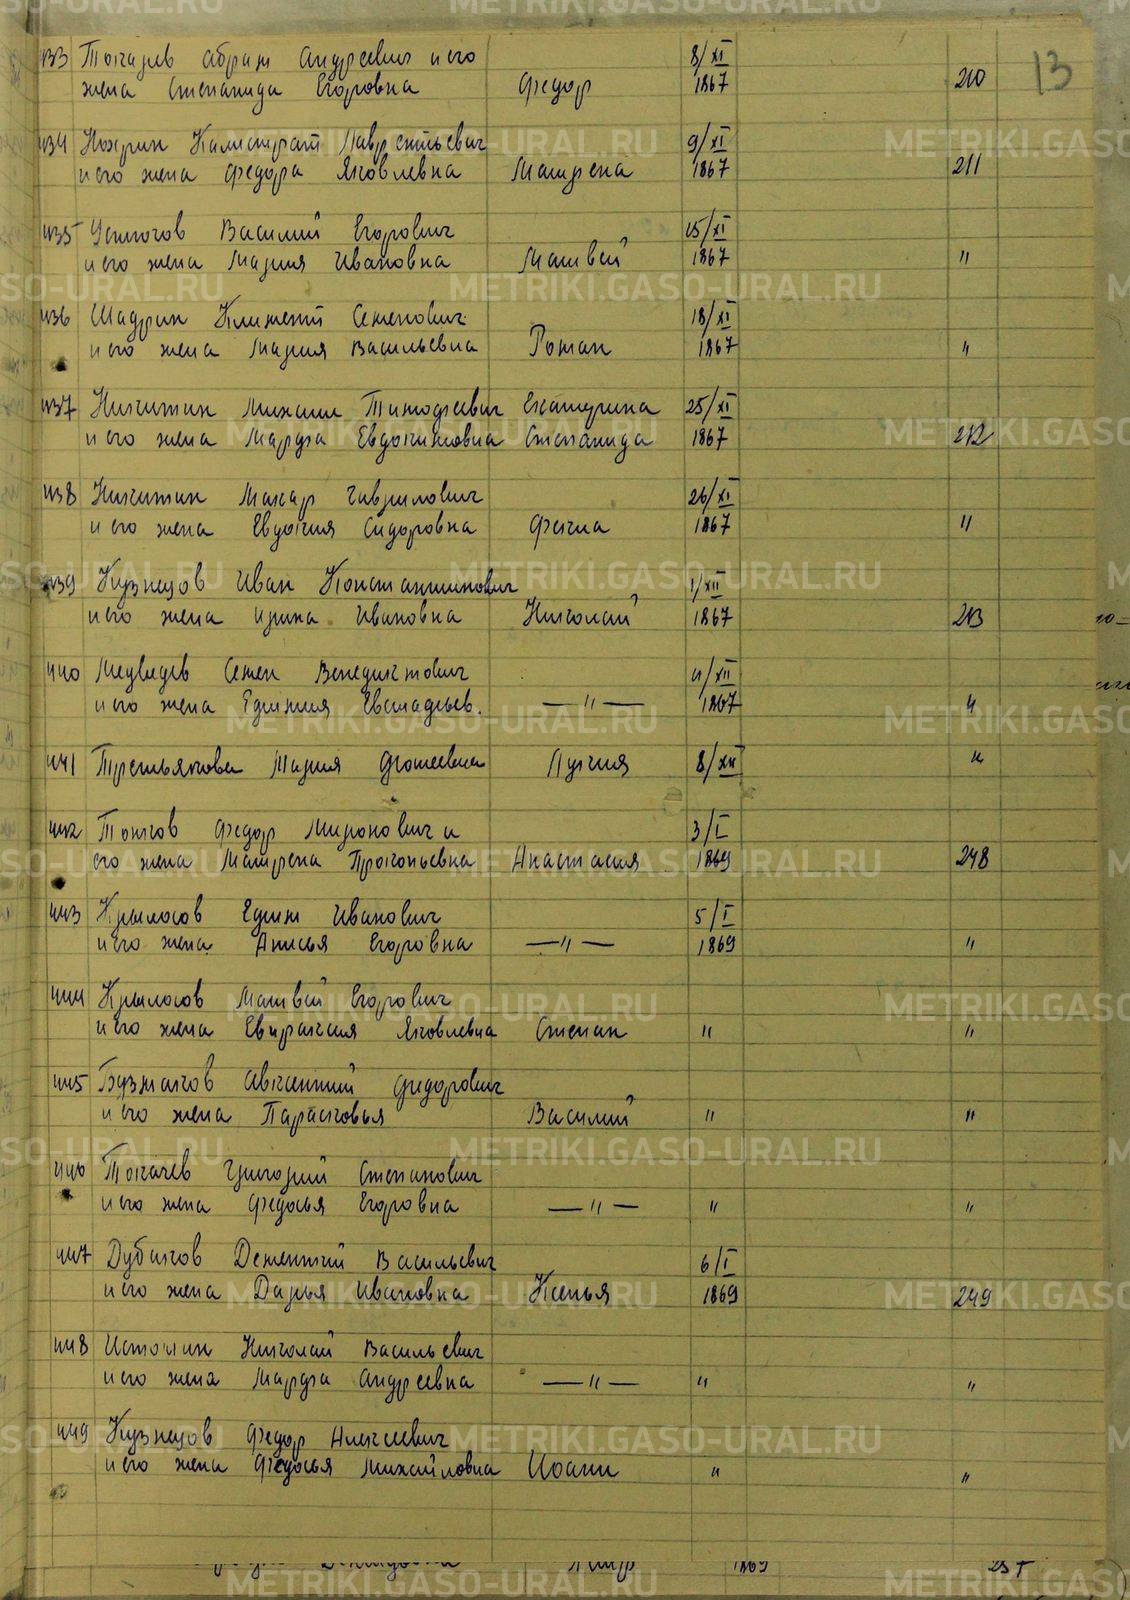 13
433 Токарев Абрам Андреевич и его 8/XI
жена Степанида Егоровна Федор 1867 210
434 Калистрат Лаврентьевич 9/XI
и его жена Федора Яковлевна Матрена 1867 211
435 Устюгов Василий Егорович 15/XI
и его жена Мария Ивановна Матвей 1867 "
436 Шадрин Климентий Семенович 18/XI
и его жена Мария Васильевна Роман 1867 "
437 Никитин Михаил Тимофеевич Екатерина 25/XI
и его жена Марфа Евдокимовна Степанида 1867 212
438 Никитин Макар Гаврилович 26/XI
и его жена Евдокия Сидоровна Фекла 1867 "
439 Кузнецов Иван Константинович 1/XII
и его жена Ирина Ивановна Николай 1867 213
440 Медведев Семен Венедиктович 4/XII
и его жена Ефимия — " — 1867 "
441 Третьякова Мария Лукия 8/XII "
442 Федор Миронович и 3/I
его жена Матрена Прокопьевна Анастасия 1869 248
443 Крылосов Ефим Иванович 5/I
и его жена Анисья Егоровна — " — 1869 "
444 Крылосов Матвей Егорович
и его жена Евпраксия Яковлевна Степан " "
445 Бузмаков Авксентий Федорович
и его жена Парасковья Василий " "
446 Токачев Григорий Степанович
и его жена Федосья Егоровна — " — " "
447 Дубаков Дементий Васильевич 6/I
и его жена Дарья Ивановна Ксенья 1869 249
448 Истомин Николай Васильевич
и его жена Марфа Андреевна — " — " "
449 Кузнецов Федор Алексеевич
и его жена Федосья Михайловна Иоанн " "
1869
METRIKI.GASO-URAL.RU